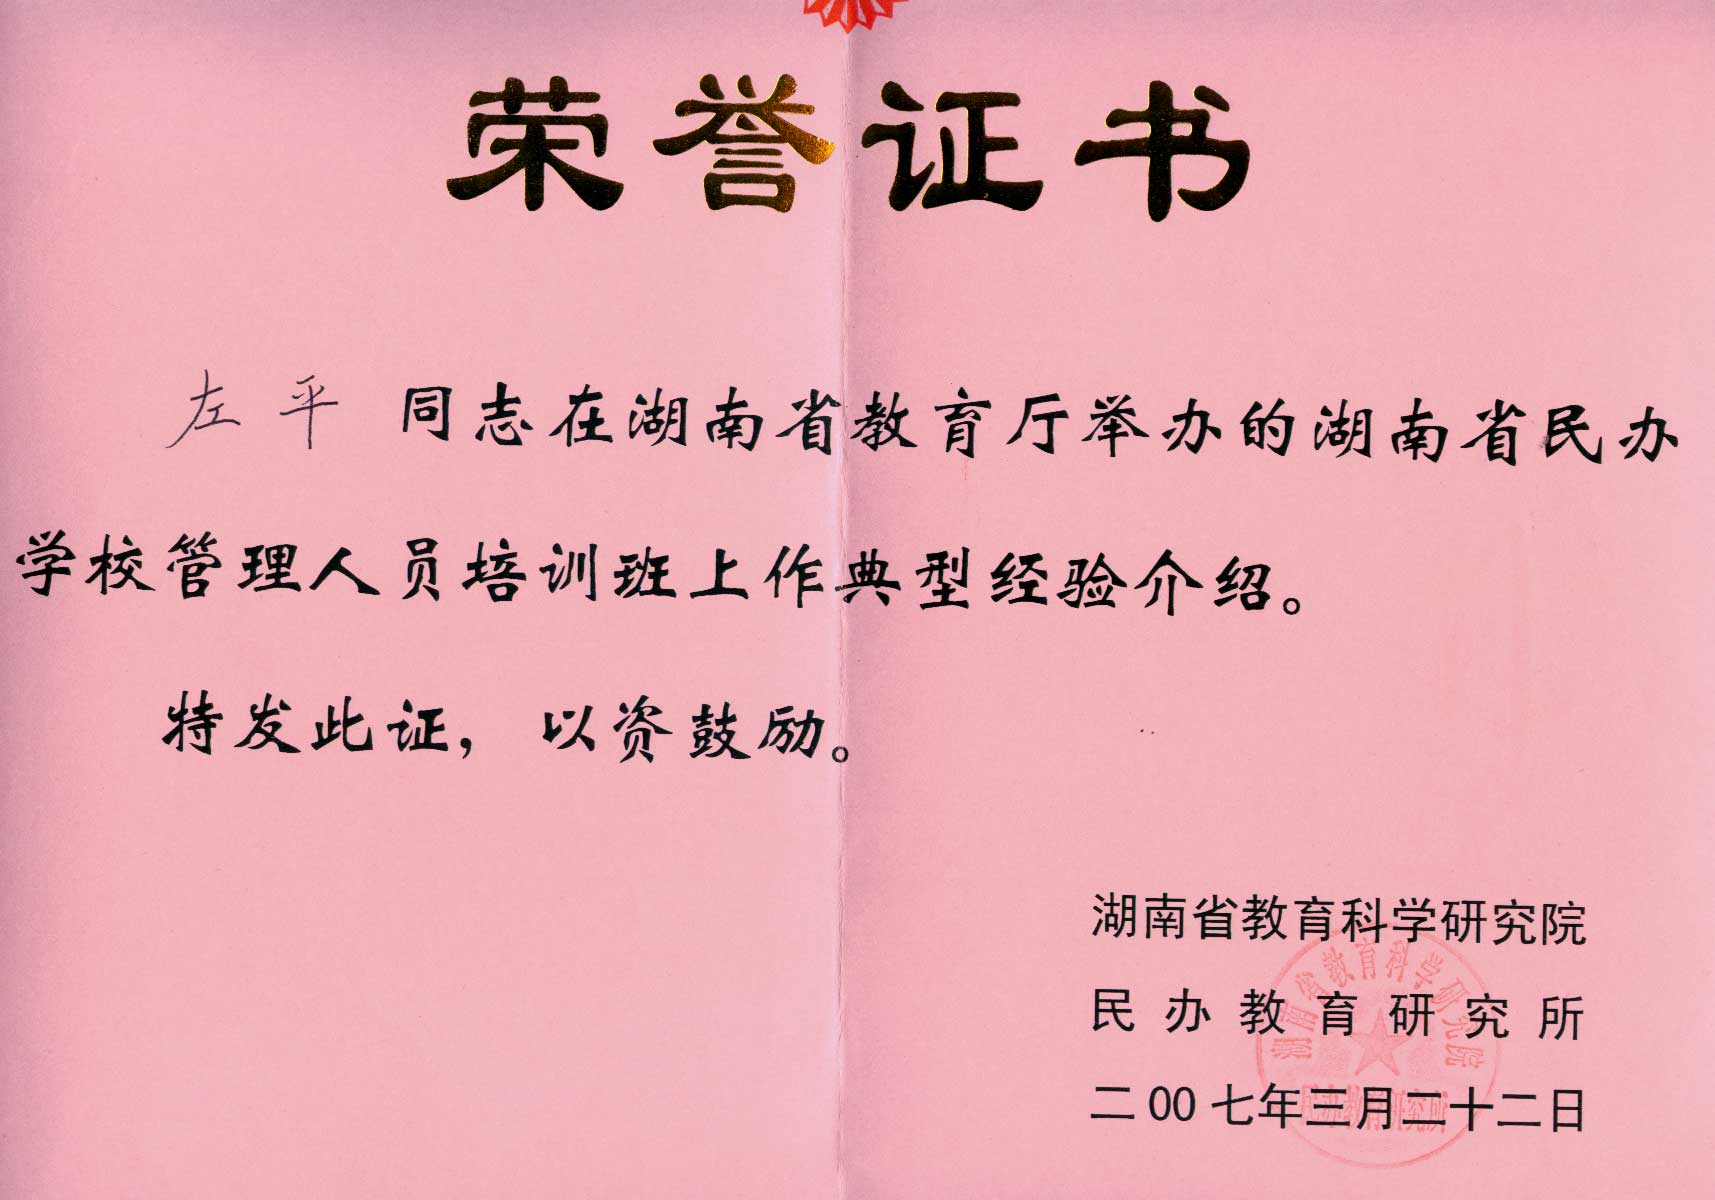 荣誉证书
左平 同志在湖南省教育厅举办的湖南省民办
学校管理人员培训班上作典型经验介绍。
特发此证，以资鼓励。
湖南省教育科学研究院
民办教育研究所
二00七年三月二十二日
湖南省教育科学研究院
民办教育研究所